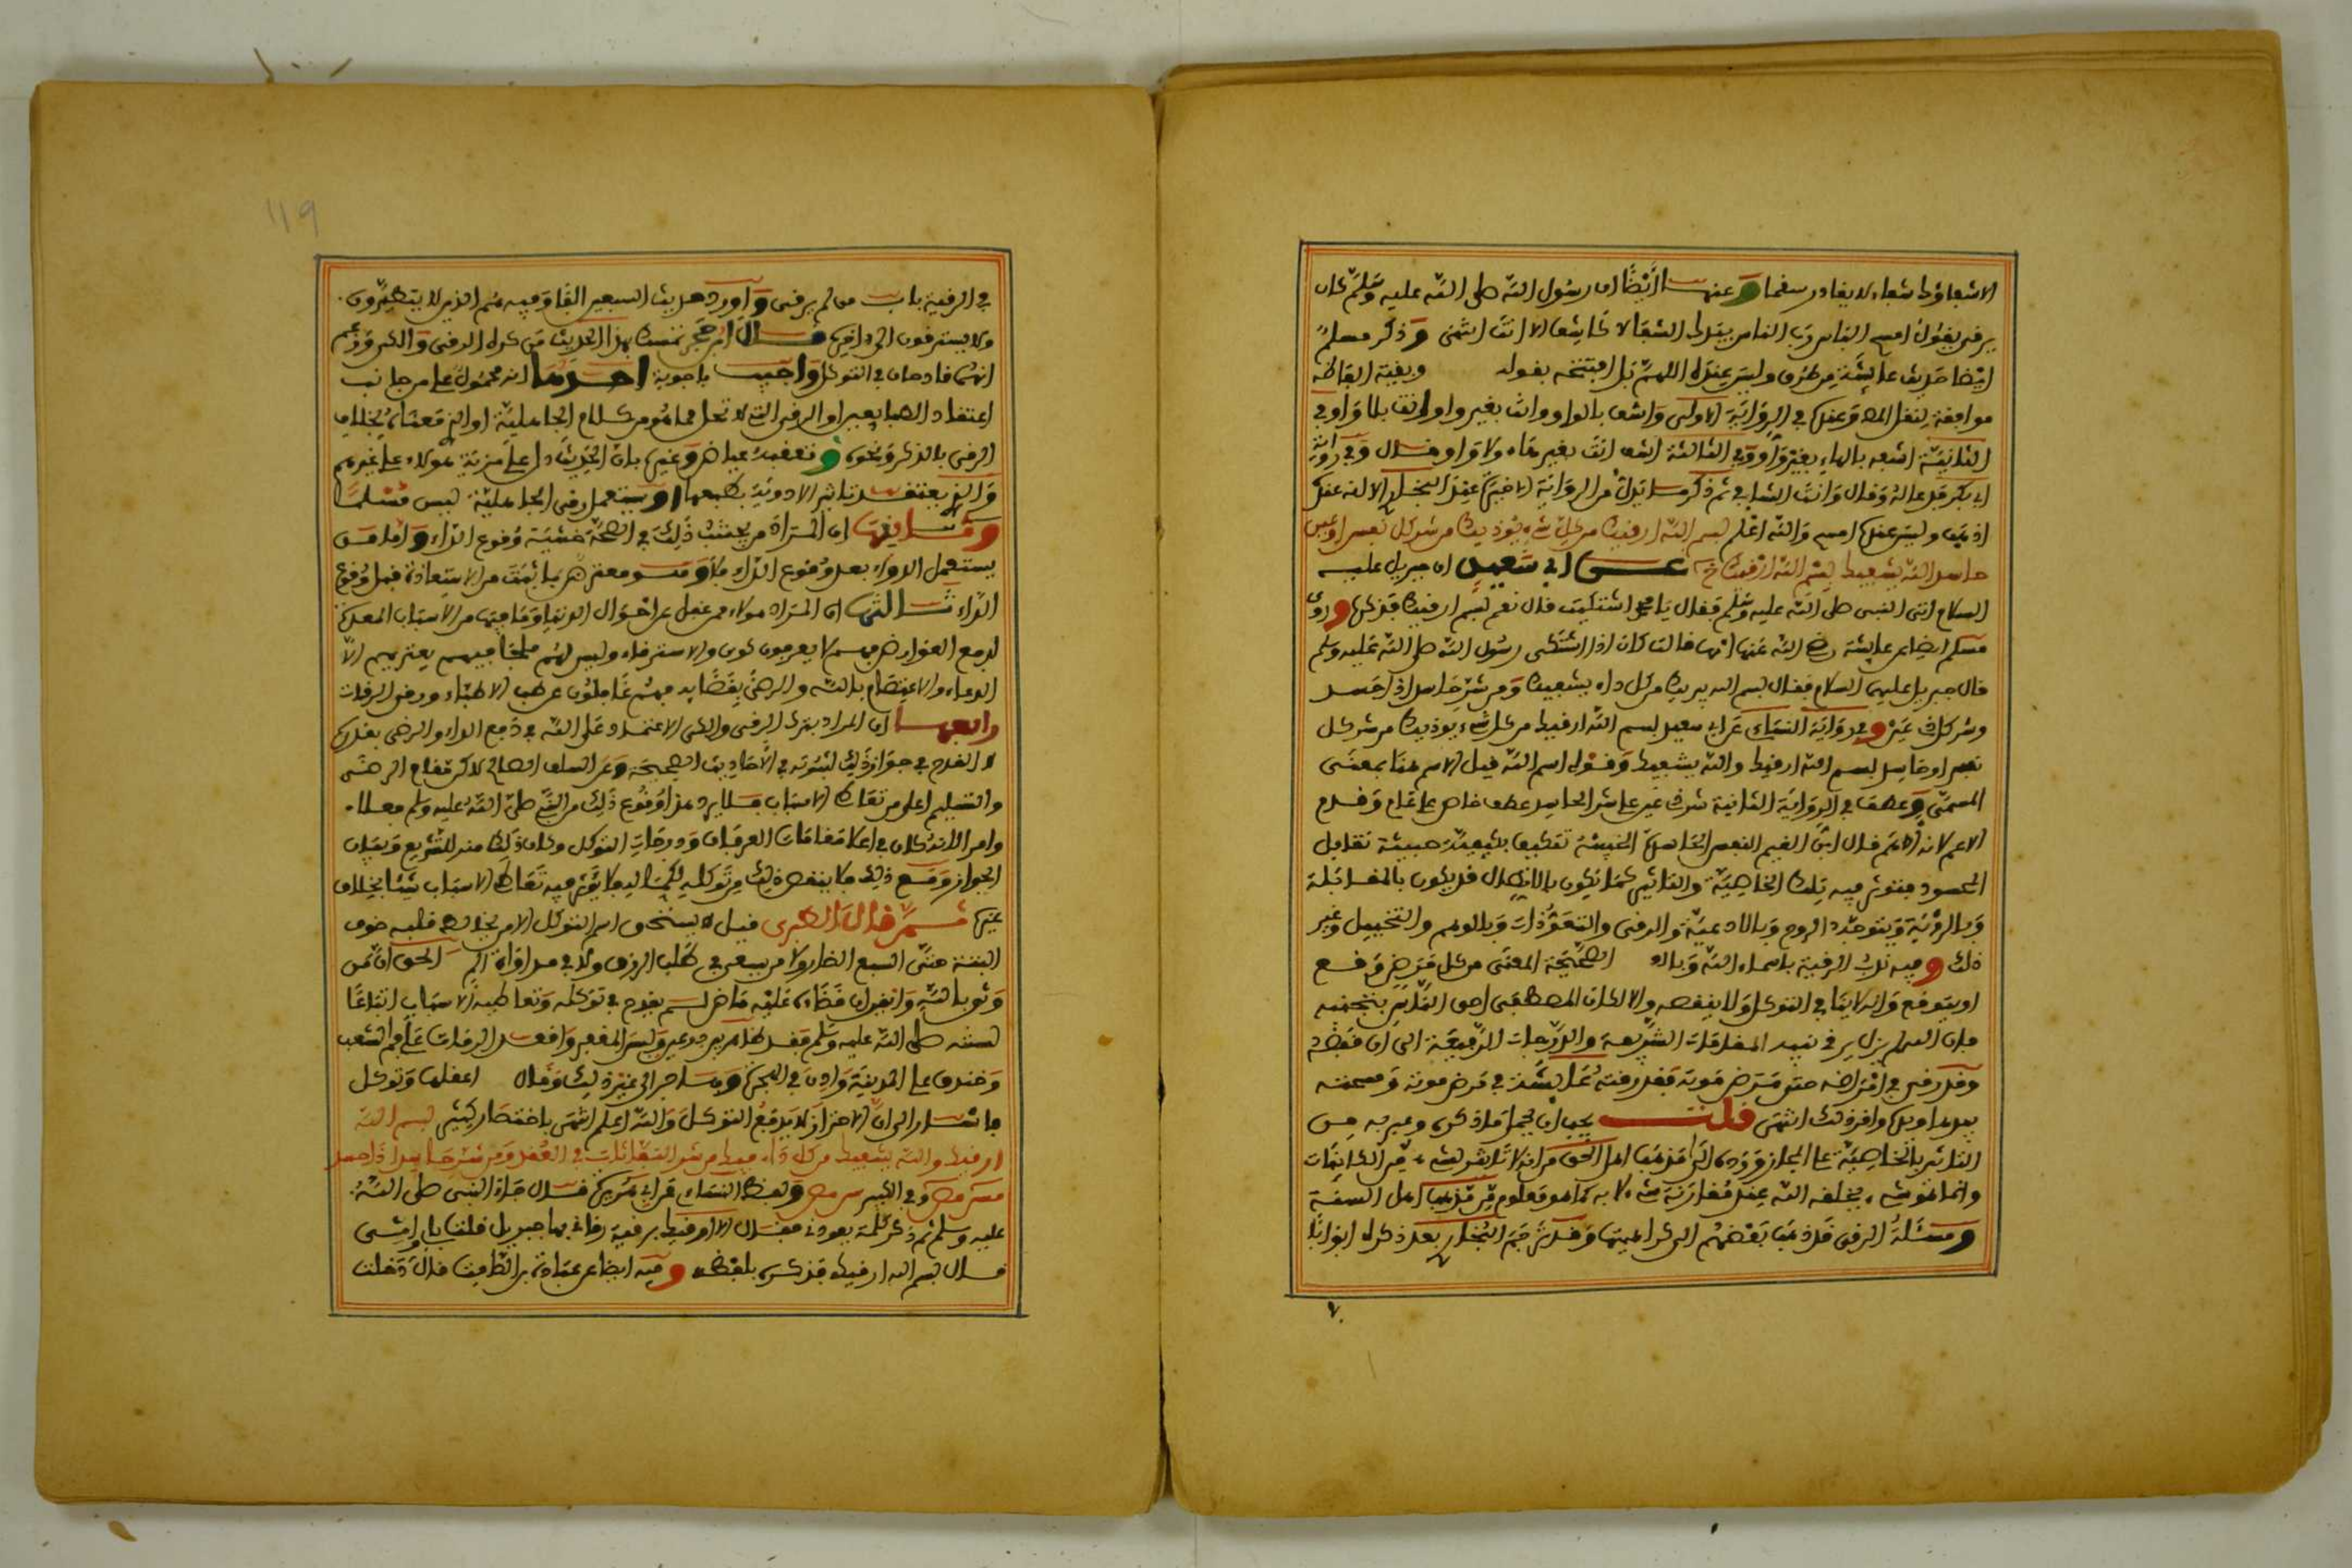 الا شفاؤك شفاء لا يغادر سقما وعنها ايضا ان رسول الله صلى الله عليه وسلم كان
يرقي يقول امسح الباس رب الناس بيدك الشفا لا كاشف الا انت انتهى وذكر مسلم
ايضا حديث عايشة من طرق وليس عنده اللهم بل افتتحه بقوله وبقية الفاظه
موافقة لنقل المص وعنده في الرواية الاولى واشف بالواو وانت بغير واو
الثانية اشفه بالهاء بغير واو وفي الثالثة اشف انت بغير هاء ولا واو وقال وفي رواية
ابي بكر فدعا له وقال وانت الشافي ثم ذكر
اذهب وليس عندها امسح والله اعلم بسم الله ارقيك من كل شيء يوذيك من شر كل نفس او عين
حاسد الله يشفيك بسم الله ارقيك عن ابي سعيد ان جبريل عليه
السلام اتى النبي صلى الله عليه وسلم فقال يا محمد اشتكيت قال نعم بسم ارقيك فذكره وروى
مسلم ايضا عن عايشة رضي الله عنها انها قالت كان اذا اشتكى رسول الله صلى الله عليه وسلم
قال جبريل عليه السلام فقال بسم الله يبريك من كل داء يشفيك ومن شر حاسد اذا حسد
وشر كل ذي عين وفي رواية النساء عن ابي سعيد بسم الله ارقيك من كل شيء يوذيك من شر كل
نفس او حاسد بسم الله ارقيك والله يشفيك وقوله اسم الله قيل الاسم هنا بمعنى
المسمى وعطف في الرواية الثانية شر ذي عين على شر الحاسد عطف خاص على عام وقدم
الاعم لانه اهم قال ابن القيم النفس الحاسدة الخبيثة تتكيف بكيفية خبيثة تقابل
المحسود فتوثر فيه بتلك الخاصية والتاثير كما يكون بالاتصال قد يكون بالمقابلة
وبالروية وبتوجه الروح وبالادعية والرقى والتعوذات وبالوهم والتخييل وغير
ذلك وفيه ندب الرقية باسماء الله وبالـ الصحيحة المعنى من كل مرض وقع
او يتوقع وانه لا ينافي التوكل ولا ينقصه والا لكان المصطفى احق الناس بتجنبه
فان الله لم يزل يرقي نبيه المقامات الشريفة والدرجات الرفيعة الى ان قبضه
وقد رقي في امراضه حتى مرض موته فقد رقته عايشة في مرض موته ومسحته
بيدها وبيده واقر ذلك انتهى قلت يجب ان يحمل ما ذكره وعبر به من
التاثير بالخاصية على المجاز ورده الى مذهب اهل الحق من انه لا تاثير لشيء من الكاينات
وانما هو شيء يخلقه الله عند مقارنة شيء لا به كما هو معلوم من مذهب اهل السنة
ومسئلة الرقى قد ذهب بعضهم الى كراهيتها وقد ترجم البخاري بعد ذكره ابوابا
119
في الرقية باب من لم يرق واورد حديث السبعين الفا وفيه هم الذين لا يتطيرون
ولا يسترقون الى اخره قال ابن حجر تمسك بهذا الحديث من كره الرقى والكي وزعم
انهما قادحان في التوكل واجيب باجوبة احدها انه محمول على من جانب
اعتقاد الطبايعيين او الرقى التي لا تحل مما هو من كلام الجاهلية او الذي معناه بخلاف
الرقى بالذكر ونحوه وتعقبه عياض وغيره بان الحديث دل على مزية هولاء على غيرهم
والذي يعتقد تاثير الادوية بطبعها او يستعمل رقى الجاهلية ليس مسلما
وثانيها ان المراد من يجتنب ذلك في الصحة خشية وقوع الداء واما من
يستعمل الدواء بعد وقوع الداء فلا
الداء ثالثها ان المراد هولاء من غفل عن احوال الدنيا وما فيها من الاسباب المعدة
لدفع العوارض فهم لا يعرفون كوى ولا استرقاء وليس لهم ملجا فيما يعتريهم الا
الدعاء والاعتصام بالله والرضى بقضايه فهم غافلون عن طب الاطباء ورقى الرقات
رابعها ان المراد بترك الرقى والكي الاعتماد على الله في دفع الداء والرضى بقدره
لا القدح في جواز ذلك لثبوته في الاحاديث الصحيحة وعن السلف الصالح لاكن مقام الرضى
والتسليم اعلى من تعاطي الاسباب فلا يرد هذا وقوع ذلك من النبي صلى الله عليه وسلم فعلا
وامرا لانه كان في اعلا مقامات العرفان ودرجات التوكل وكان ذلك منه للتشريع وبيان
الجواز ومع ذلك فلا ينقص ذلك من توكله لكماله فلا يوثر فيه تعاطي الاسباب شيئا بخلاف
غيره ثم قال الطبري قيل لا يستحق اسم التوكل الا من لم يخالط قلبه خوف
البتة حتى السبع الضار ولا من يسعى في طلب الرزق ولا في مداواة الم الحق ان من
وثق بالله وايقن ان قضاءه عليه ماض لم يقدح في توكله وتعاطيه الاسباب اتباعا
لسنته صلى الله عليه وسلم فقد ظاهر بين درعين ولبس المغفر واقعد الرماة على فم الشعب
وخندق على المدينة واذن في الهجرة وهاجر الى غير ذلك وقال اعقلها وتوكل
فاشار الى ان الاحتراز لا يدفع التوكل والله اعلم انتهى باختصار كثير بسم الله
ارقيك والله يشفيك من كل داء فيك من شر النفاثات في العقد ومن شر حاسد اذا حسد
مس مص وفي الكبير س مص ولفظ النساء عن ابي هريرة قال جاء النبي صلى الله
عليه وسلم ثم ذكر كلمة يعوده فقال الا ارقيك برقية رقاني بها جبريل قلت بابي وامي
قال بسم الله ارقيك فذكره بلفظه وفيه ايضا عن عبادة بن الصامت قال دخلت